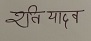 श्रुति यादव